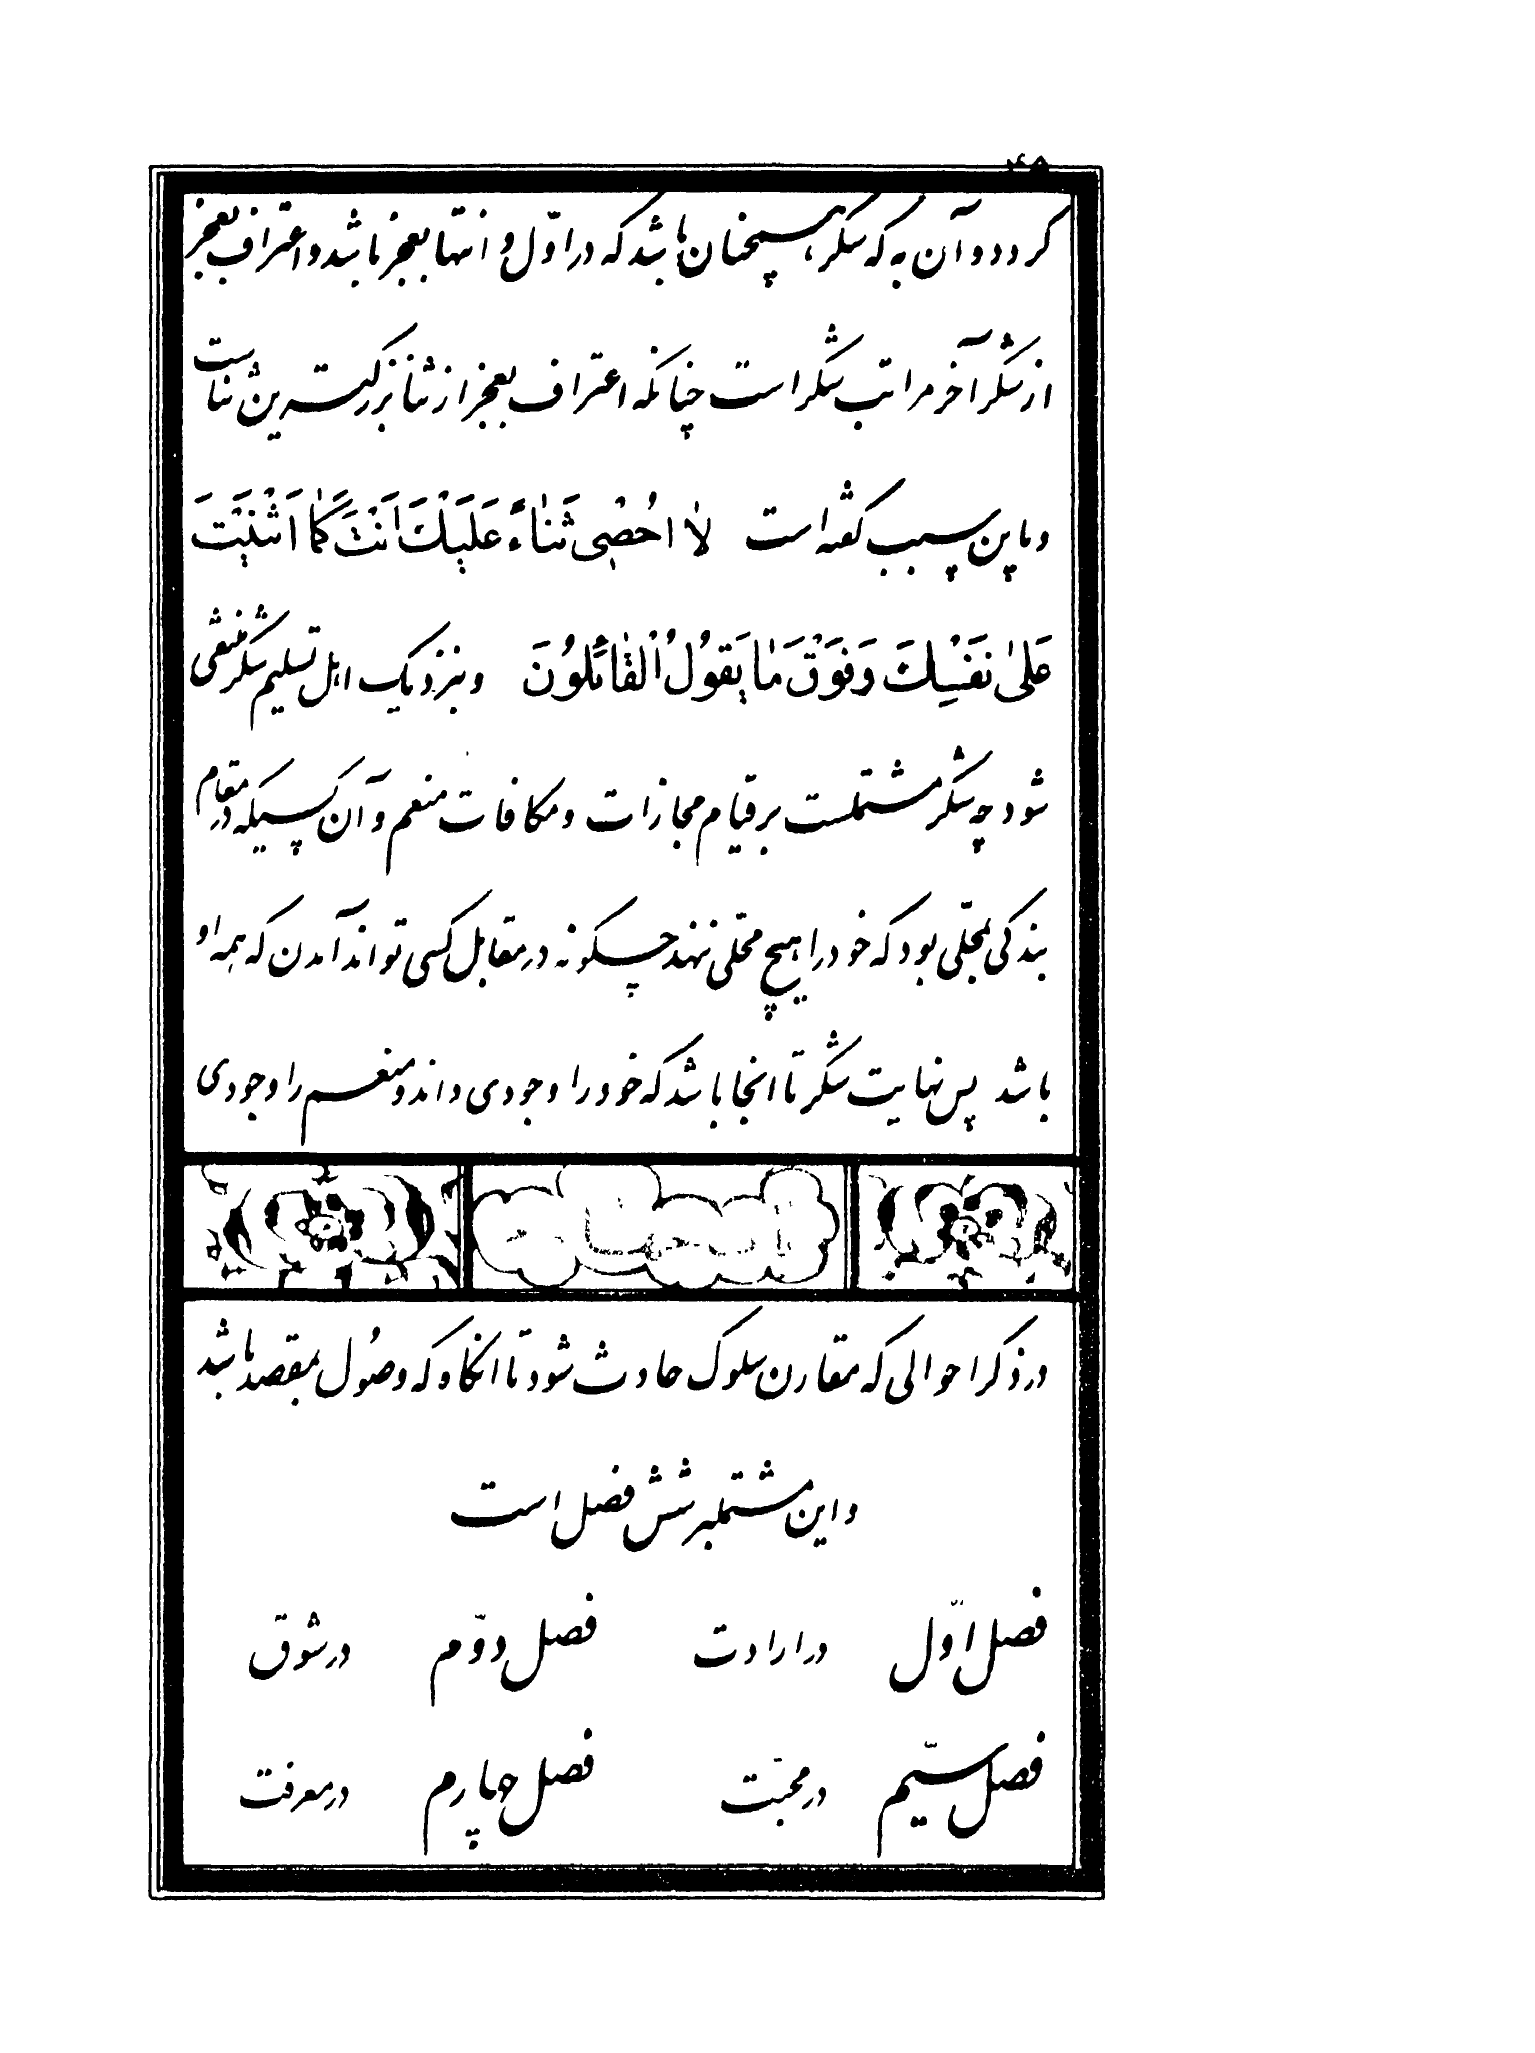 گردد و آن به که شکر، همچنان باشد که در اوّل و انتها بعجز باشد و اعتراف بعجز
از شکر آخر مراتب شکر است چنانکه اعتراف بعجز از ثنا بزرگترین ثناست
و باین سبب گفته است لا اُحْصی ثَناءً عَلَیْكَ اَنْتَ کَما اَثْنَیْتَ
عَلیٰ نَفْسِكَ وَ فَوْقَ مٰا یَقُولُ الْقٰائِلُونَ و بنزدیک اهل تسلیم شکر منتفی
شود چه شکر مشتملست بر قیام مجازات و مکافات منعم و آن کسیکه در مقام
بندگی بمحلّی بود که خود را هیچ محلی ننهد چگونه در مقابل کسی تواند آمدن که همه او
باشد پس نهایت شکر تا انجا باشد که خود را وجودی داند و منعم را وجودی
در ذکر احوالی که مقارن سلوک حادث شود تا انگاه که وصول بمقصد باشد
و این مشتملبر شش فصل است
فصل اوّل در ارادت فصل دوّم در شوق
فصل سیّم در محبّت فصل چهارم در معرفت